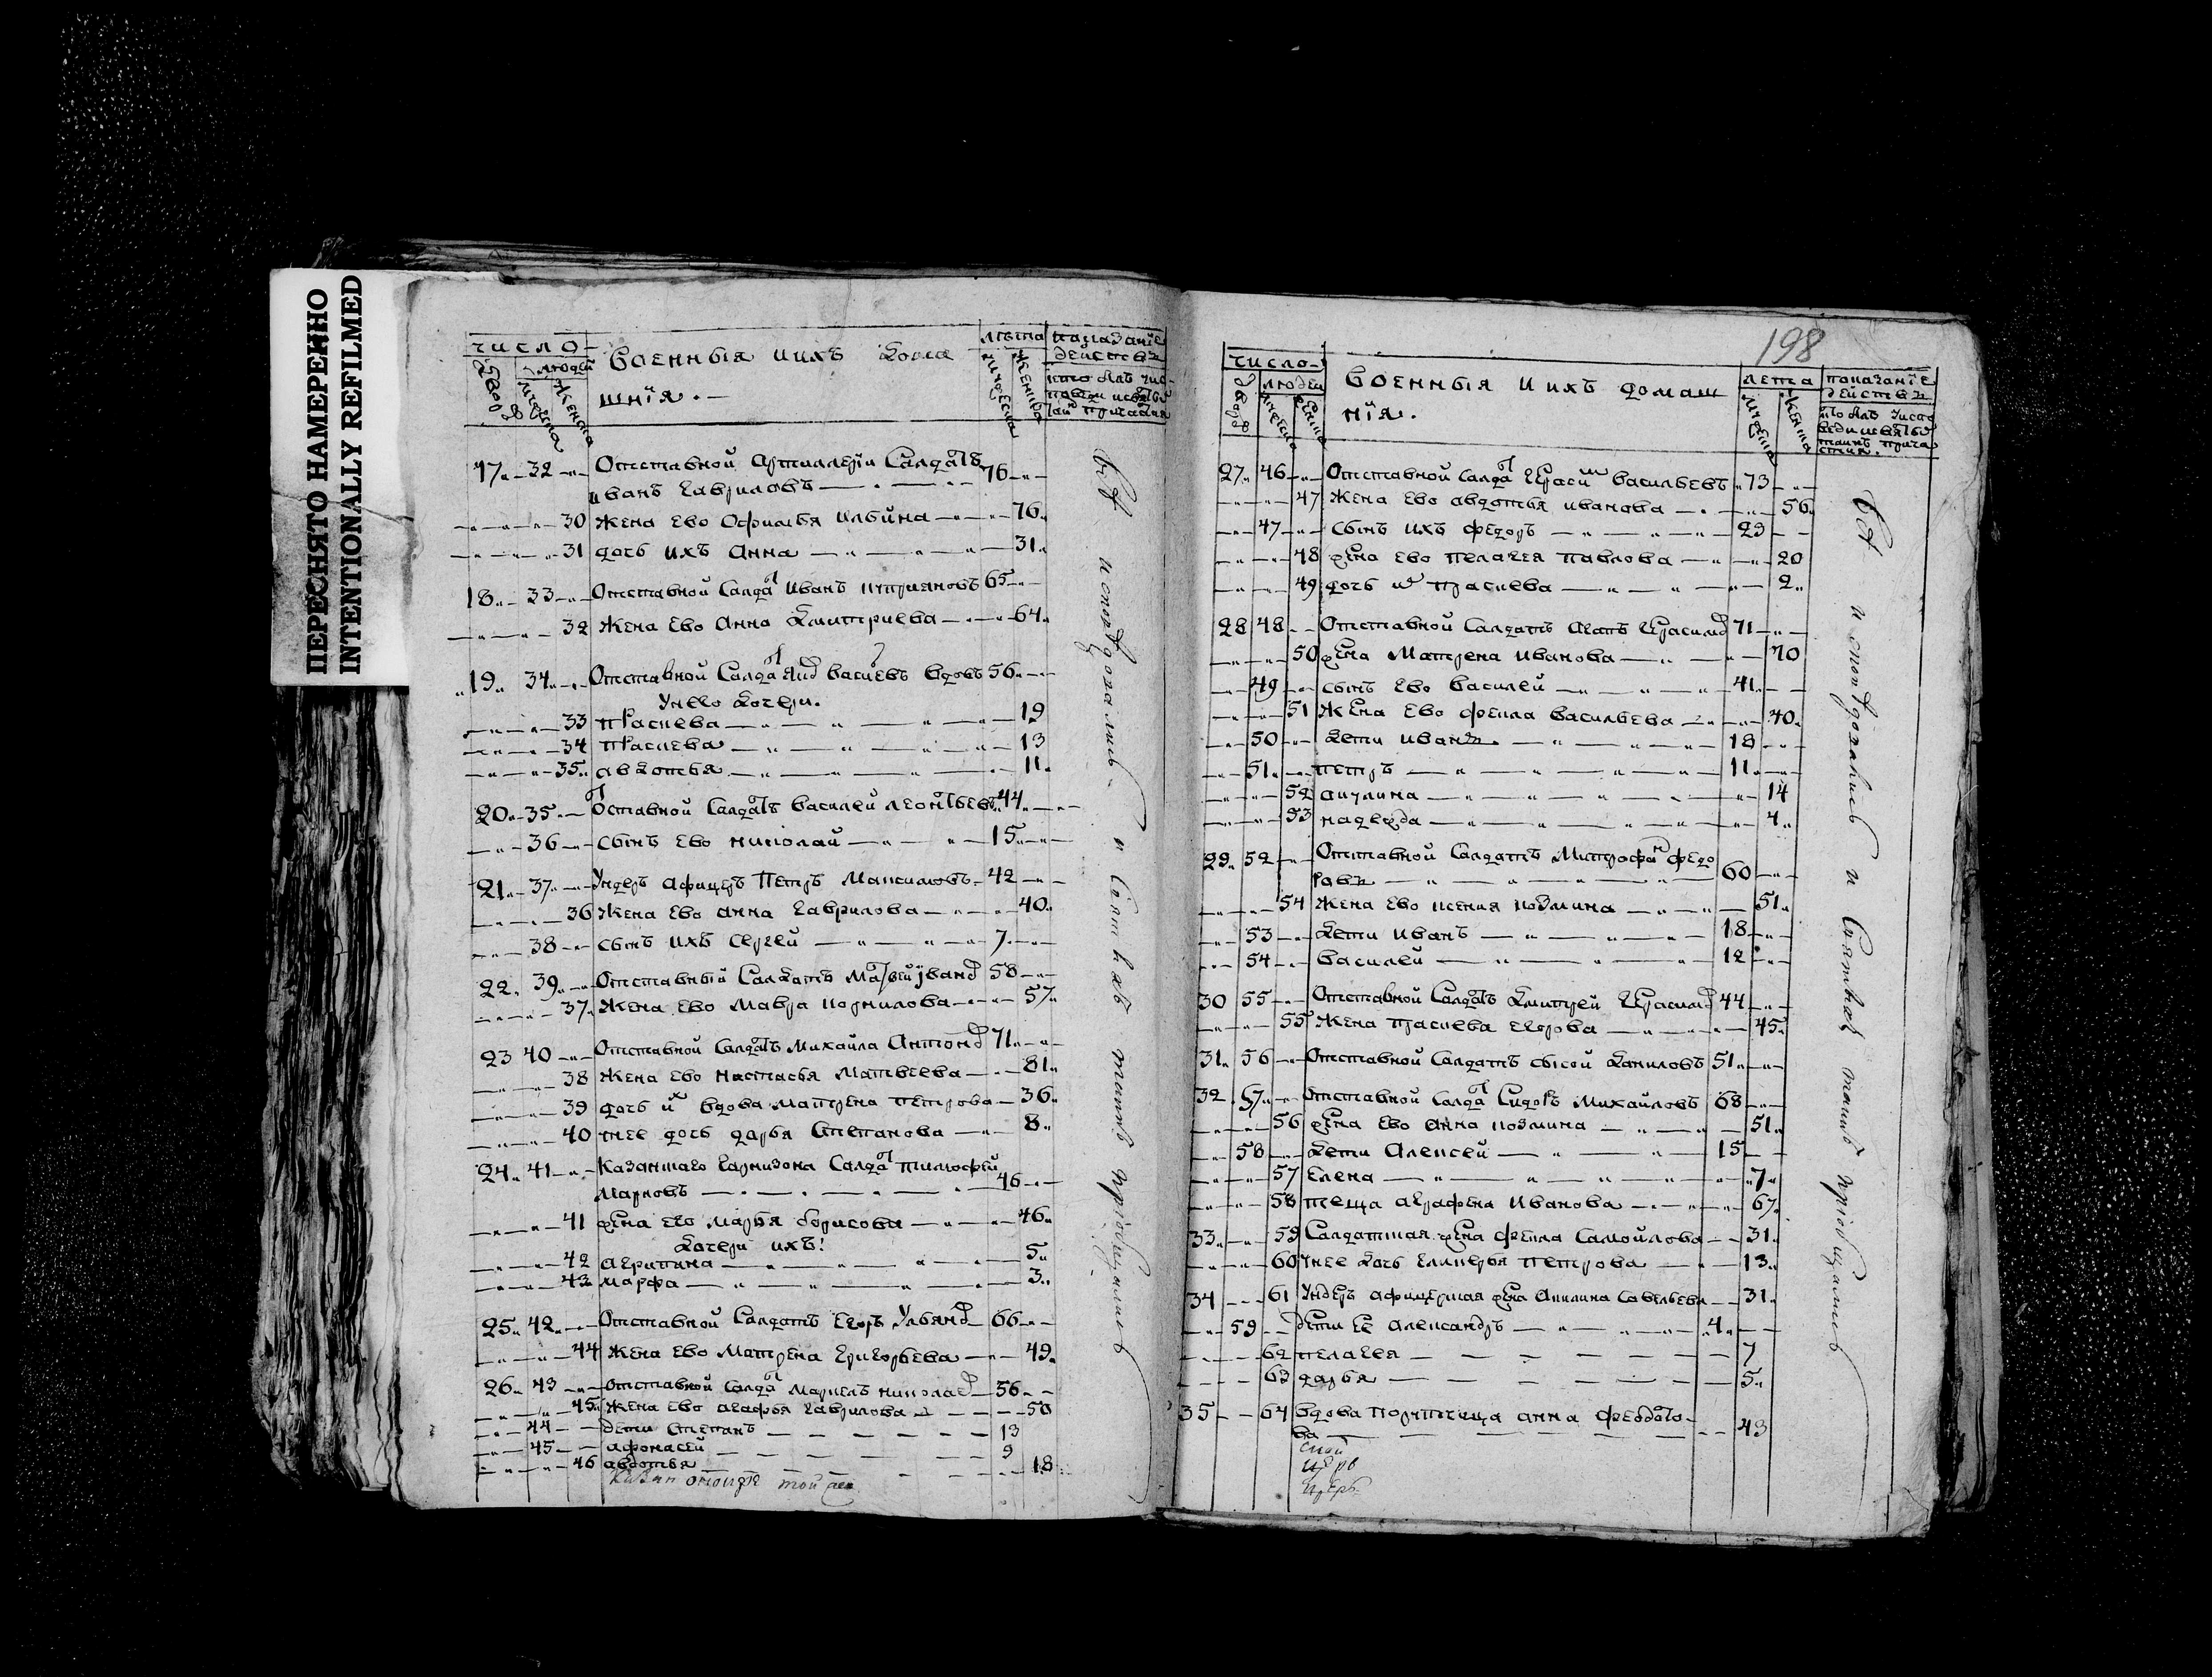 ПЕРЕСНЯТО НАМЕРЕННО
INTENTIONALLY REFILMED
число
военныя иихъ дома
шнiя.
лѣта
показанiе
действъ
17 32 Отставной Артиллерiи Салдатъ 76
иванъ Гавриловъ
30 жена Ево Офимья Ильина 76
31 дочь ихъ Анна 31
18 33 Отставной Салдат Иванъ 65
32 Жена Ево Анна Дмитриева 64
19 34 Отставной Салдат вдовъ 56
Унево дочери.
33 Прасковья 19
34 13
35 авдотья 11
20 35 Отставной Салдатъ Василей леонтьевъ 44
36 сынъ Ево николай 15
21 37 Ундеръ афицеръ Петръ Максимовъ 42
36 Жена Ево анна Гаврилова 40
38 сынъ ихъ Сергей 7
22 39 Отставный Салдатъ Матвей иванов 58
37 Жена Ево Мавра кормилова 57
23 40 Отставной Салдатъ Михайла Антонов 71
38 Жена Ево настасья Матвеева 81
39 дочь их вдова Матрена петрова 36
40 унее дочь дарья Степанова 8
24 41 Казанскаго Гарнизона Салдат тимофей
Марковъ 46
41 жена его марья борисова 46
Дочери ихъ:
42 агрипина 5
43 марфа 3
25 42 Отставной Салдатъ Егоръ Ульянов 66
44 Жена Ево Матрена григорьева 49
26 43 отставной Салдат Маркелъ николаев 56
45 жена Ево агафья гаврилова 50
44 дети Степанъ 13
45 афонасей 9
46 авдотья 18
всѣ исповѣдовались и Святыхъ таинъ прiобщились
198
число
людей
военныя и ихъ домаш
нiя.
лета
показанiе
действъ
27 46 Отставной Салдат Герасим Васильевъ 73
47 Жена Ево авдотья иванова 56
47 сынъ ихъ федоръ 29
48 жена Ево пелагея павлова 20
49 дочь их 2
28 48 Отставной Салдатъ Герасимов 71
50 жена Матрена иванова 70
49 сынъ Ево василей 41
51 Жена Ево фекла васильева 40
50 дети иванъ 18
51 петръ 11
52 акулина 14
53 надежда 4
29 52 Отставной Салдатъ Митрофан федо
ровъ 60
54 Жена Ево ксения козмина 51
53 дети иванъ 18
54 василей 12
30 55 Отставной Салдатъ Дмитрей Герасимов 44
55 Жена Егорова 45
31 56 Отставной Салдатъ сысой даниловъ 51
32 57 Отставной Салдат Сидоръ Михайловъ 68
56 жена Ево Анна козмина 51
58 дети Алексей 15
57 Елена 7
58 теща аграфена Иванова 67
33 59 Салдатская жена фекла Самойлова 31
60 унее дочь петрова 13
34 61 Ундеръ афицерская жена Савельева 31
59 дети Ее Александръ 4
62 пелагея 7
63 дарья 5
35 64 вдова анна федото-
ва 43
всѣ исповѣдовались и Святыхъ таинъ прiобщались